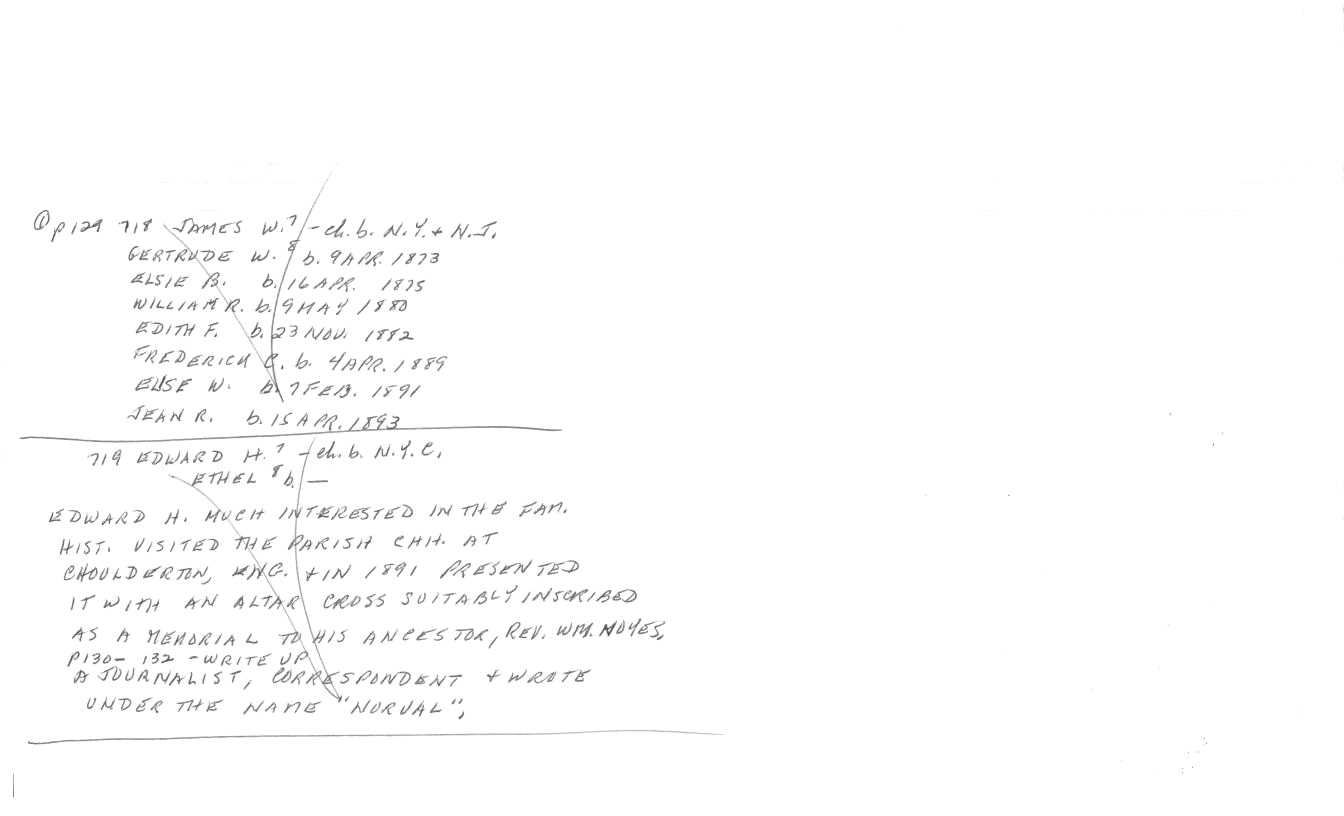 ① p129 718 JAMES W.⁷ – ch. b. N.Y. + N.J.
GERTRUDE W.⁸ b. 9 APR. 1873
ELSIE B. b. 16 APR. 1875
WILLIAM R. b. 9 MAY 1880
EDITH F. b. 23 NOV. 1882
FREDERICK C. b. 4 APR. 1889
ELISE W. b. 7 FEB. 1891
JEAN R. b. 15 APR. 1893
719 EDWARD H.⁷ – ch. b. N.Y.C.
ETHEL⁸ b. —
EDWARD H. MUCH INTERESTED IN THE FAM.
HIST. VISITED THE PARISH CHH. AT
CHOULDERTON, ENG. + IN 1891 PRESENTED
IT WITH AN ALTAR CROSS SUITABLY INSCRIBED
AS A MEMORIAL TO HIS ANCESTOR, REV. WM. NOYES,
P130 – 132 – WRITE UP
A JOURNALIST, CORRESPONDENT + WROTE
UNDER THE NAME "NORVAL",